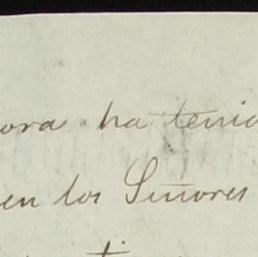 ora ha tenid
en los Señores